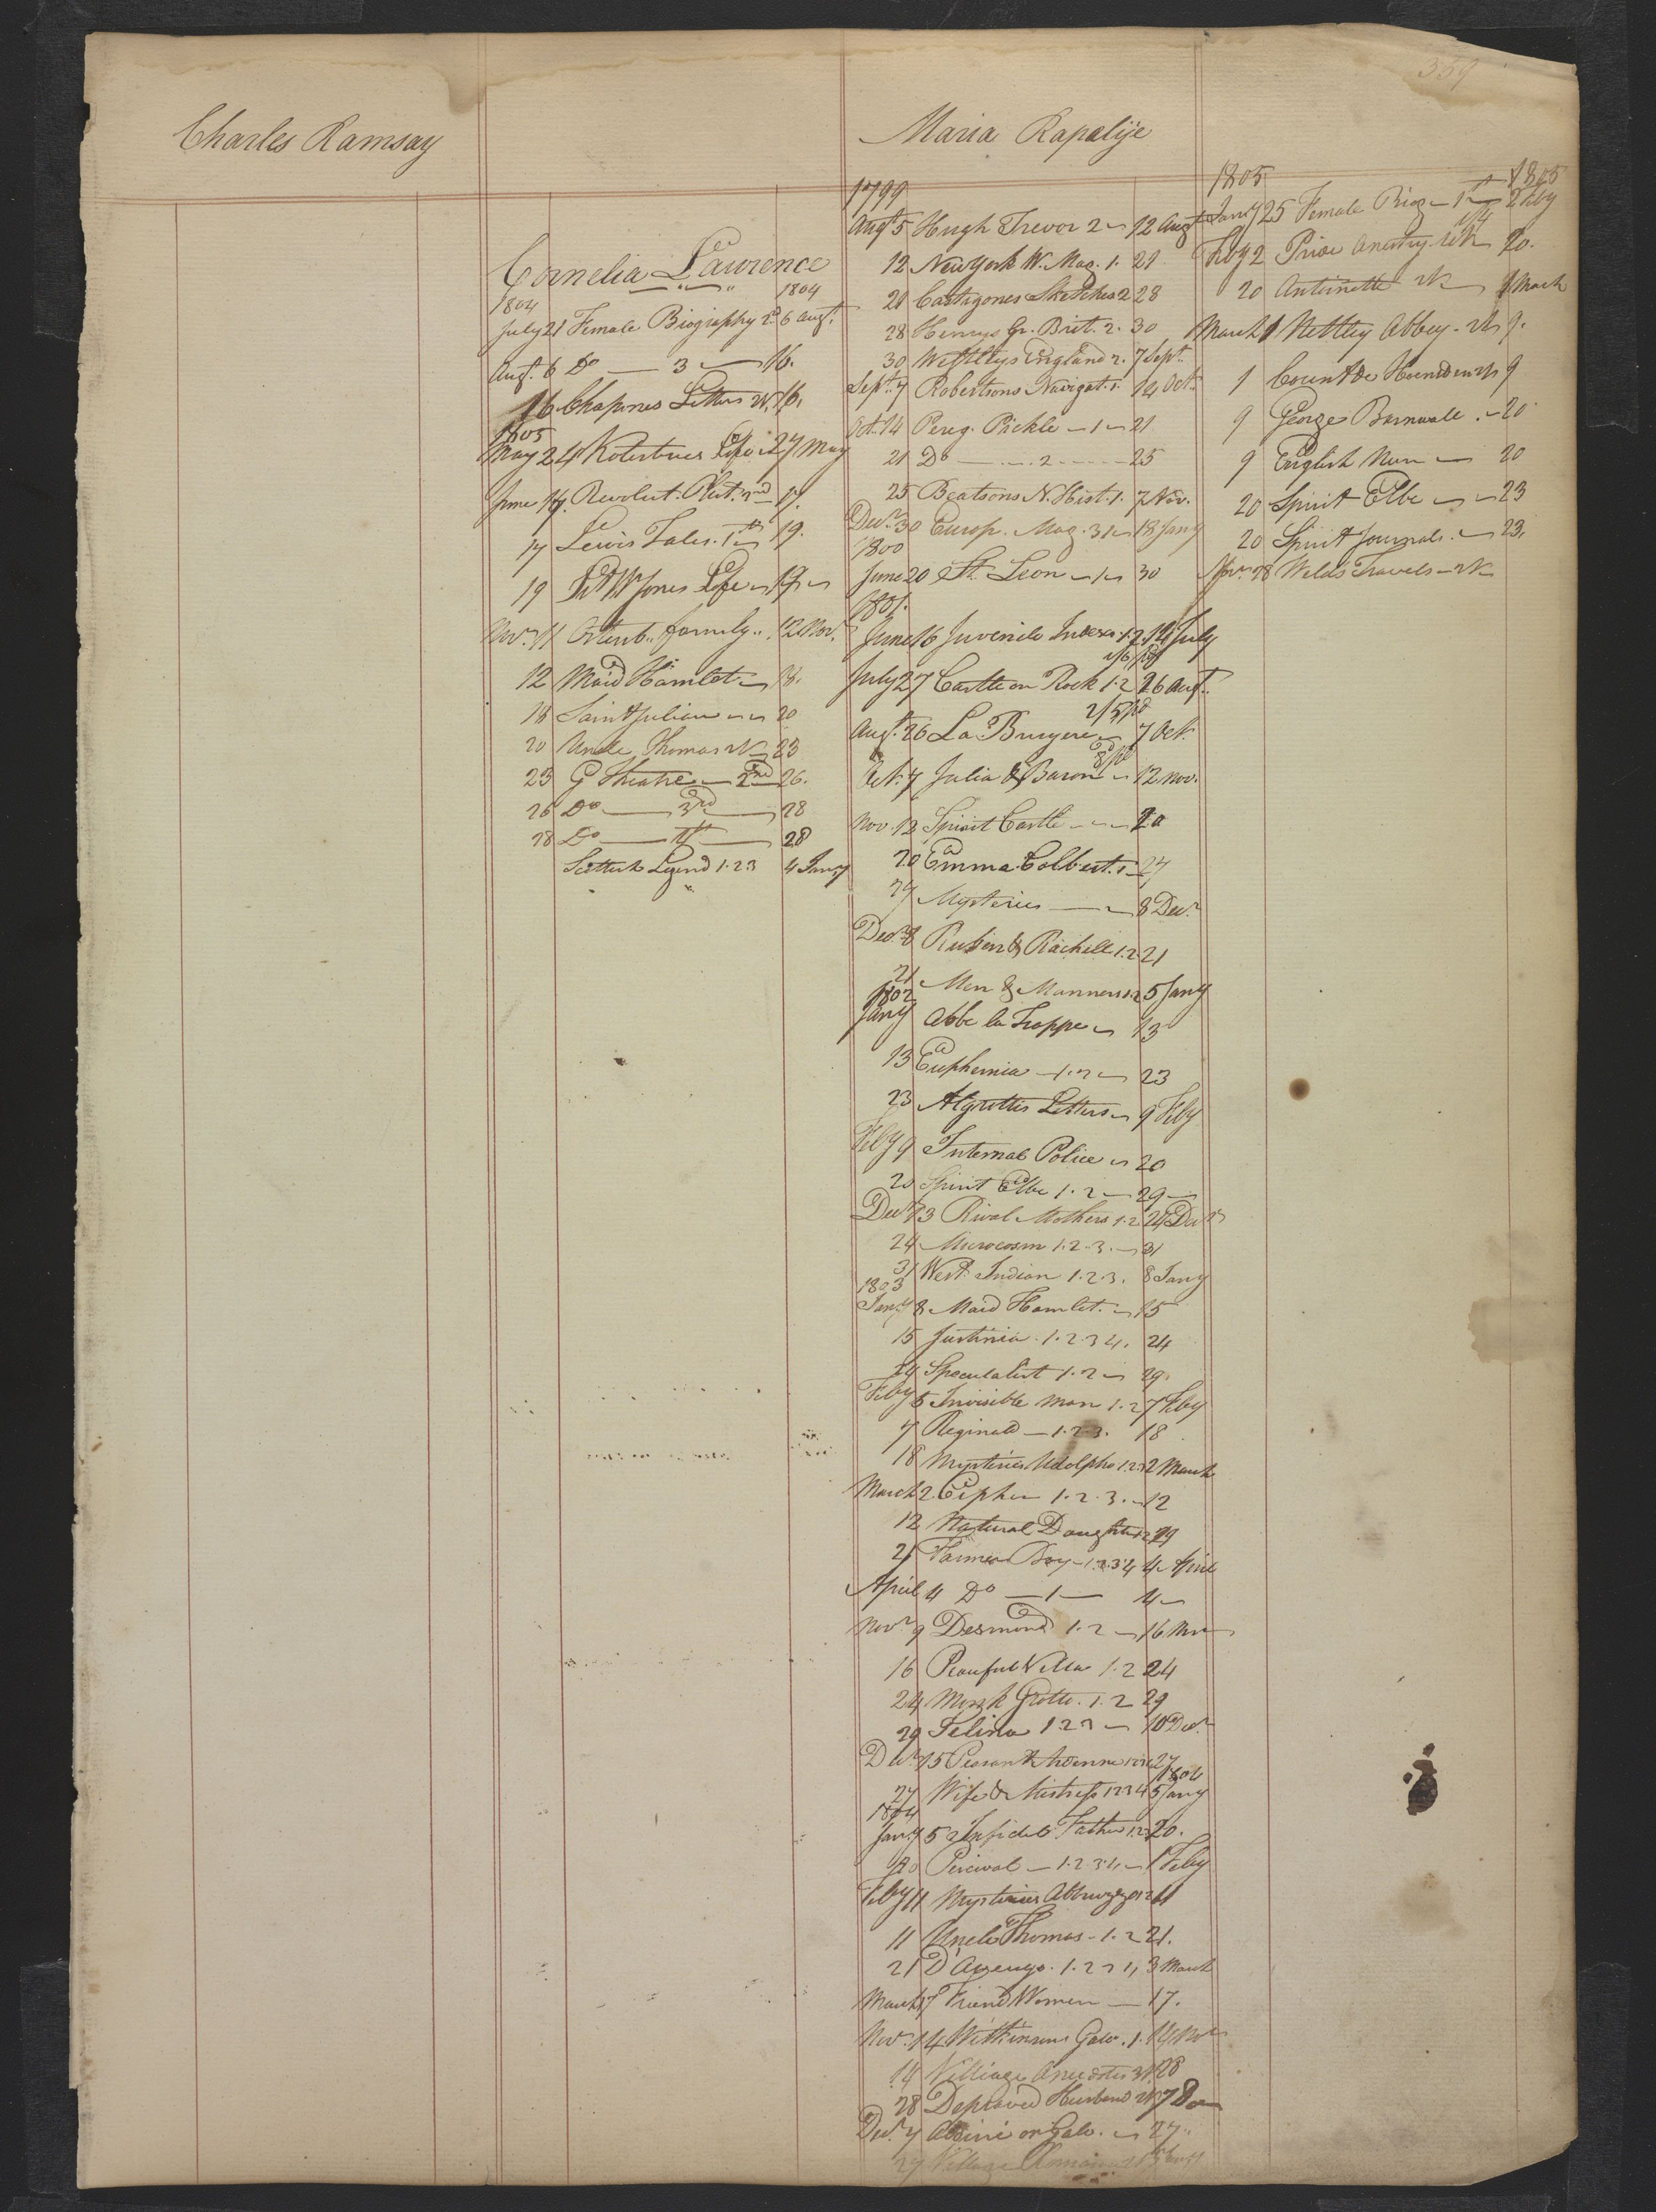 359
Charles Ramsay
Cornelia Laurence
1804 1804
July 21 Female Biography 2d 6 Augt.
Augt. 6 Do 3 16.
16 Chapones Letters
1805
May 24 Kotzebues Life 1 27 May
June 14 Revolut. Plut. 2nd 17.
17 Lewis Tales 1st 19.
19 Sr Wm Jones Life 19
Novr. 11 family 12 Nov.
12 Maid Hamlet 18.
18 Saint Julian 20
20 Uncle Thomas 23
23 G Theatre 2nd 26.
26 Do 3rd 28
28 Do 4th 28
Scottish Legend 1.2.3 4 Jany
Maria Rapalije
1799
Augt 5 Hugh Trevor 2 12 Augt
12 New York W. Mag. 1. 21
21 Castigones Sketches 2 28
28 Henrys Gr. Brit. 2. 30
30 England 2. 7 Sept.
Sept. 7 Robertsons Navigat. 1. 14 Oct.
Oct. 14 Pereg. Pickle 1 21
21 Do 2 25
25 Beatsons N. Hist. 1. 7 Nov.
Decr. 30 Europ. Mag. 31 18 Jany
1800
June 20 St. Leon 1 30
1801.
June 16 Juvenile Indexs 1.2. 14 July
July 27 Castle on Rock 1.2 26 Augt.
Augt. 26 La Bruyere 7 Oct.
Oct. 7 Julia & Baron 12 Nov.
Nov. 12 Spirit Castle 20
20 Emma Colbert. 1 27
27 Mysteries 8 Decr.
Decr. 8 Rubin & Rachell 1.2 21
21 Men & Manners 1.2 5 Jany
1802
Jany Abbe la Trappe 13
13 Euphemia 1.2 23
23 Algrottis Letters 9 Feby
Feby 9 Internal Police 20
20 Spirit Elbe 1.2 29
Decr 13 Rival Mothers 1.2 24 Decr
24 Microcosm 1.2.3. 31
31 West Indian 1.2.3. 8 Jany
1803
Jany 8 Maid Hamlet. 15
15 Justinia 1.2.3 4. 24
24 Speculatist 1.2 29
Feby 5 Invisible Man 1.2 7 Feby
7 Reginald 1.2.3. 18
18 Mysteries Udolpho 1.2.3 2 March
March 2 Cipher 1.2.3. 12
12 Natural Daughter 1.2
21 Farmer Boy 1.2.3.4 4 April
April 4 Do 1 4
Novr 9 Desmond 1.2 16 Nov
16 Peaceful Villa 1.2 24
24 Monk Grotto. 1.2 29
29 Selina 1 2 3 10 Decr
Decr 15 Peasant Ardenne 27
1804
27 Wife & Mistress 1 2 3 4 5 Jany
1804
Jany 5 Infidel Father 1.2.3 20.
20 Percival 1.2 3.4 1 Feby
Feby 11 Mysteries Abbruzzo 1.2 11
11 Uncle Thomas 1.2 21.
21 3 March
March 7 Friend Women 17.
Novr. 14 Wilkinsons Galv. 1. 14 Nov
14 Village Anecdotes 28
28 Depraved Husband
Decr. 7 Aldini on Galv. 27
27 Village
1805 1805
Jany 25 Female Biog 1st 2 Feby
Feby 2 Pride Ancestry 20.
20 Antoinette 1 March
March 1 Nettley Abbey 9.
1 Count de 9
9 George Barnwale 20
9 English Nun 20
20 Spirit Elbe 23
20 Spirit Journals. 23.
Novr. 28 Welds Travels